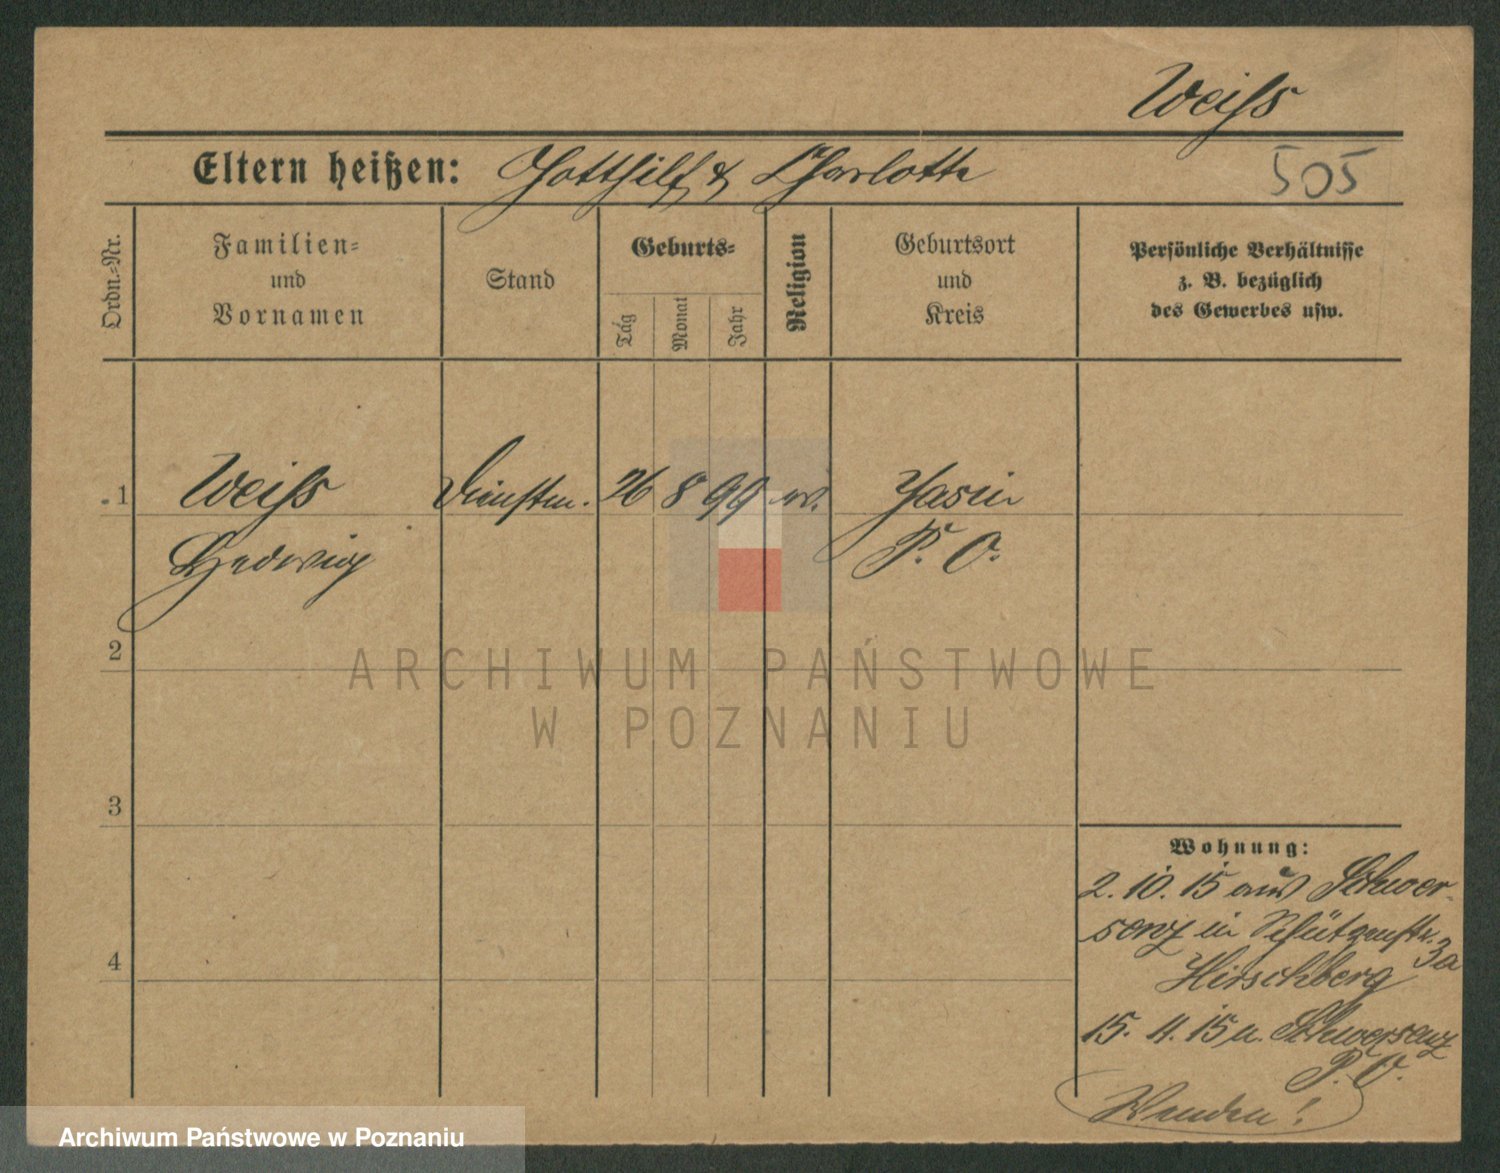 Weiss
Eltern heißen: Gotthilf & Charlotte
505
Ordn.-Nr.
Familien-
und
Vornamen
Stand
Geburts-
Tag
Monat
Jahr
Religion
Geburtsort
und
Kreis
Persönliche Verhältnisse
z. B. bezüglich
des Gewerbes usw.
1 Weiss Dienstm. 26 8 99 Jasin
Hedwig P. O.
2
3
4
ARCHIWUM PAŃSTWOWE
W POZNANIU
Wohnung:
2. 10. 15 aus Schwer-
senz in Schützenstr. 3a
Hirschberg
15. 11. 15 n. Schwersenz
P. O.
Wenden!
Archiwum Państwowe w Poznaniu